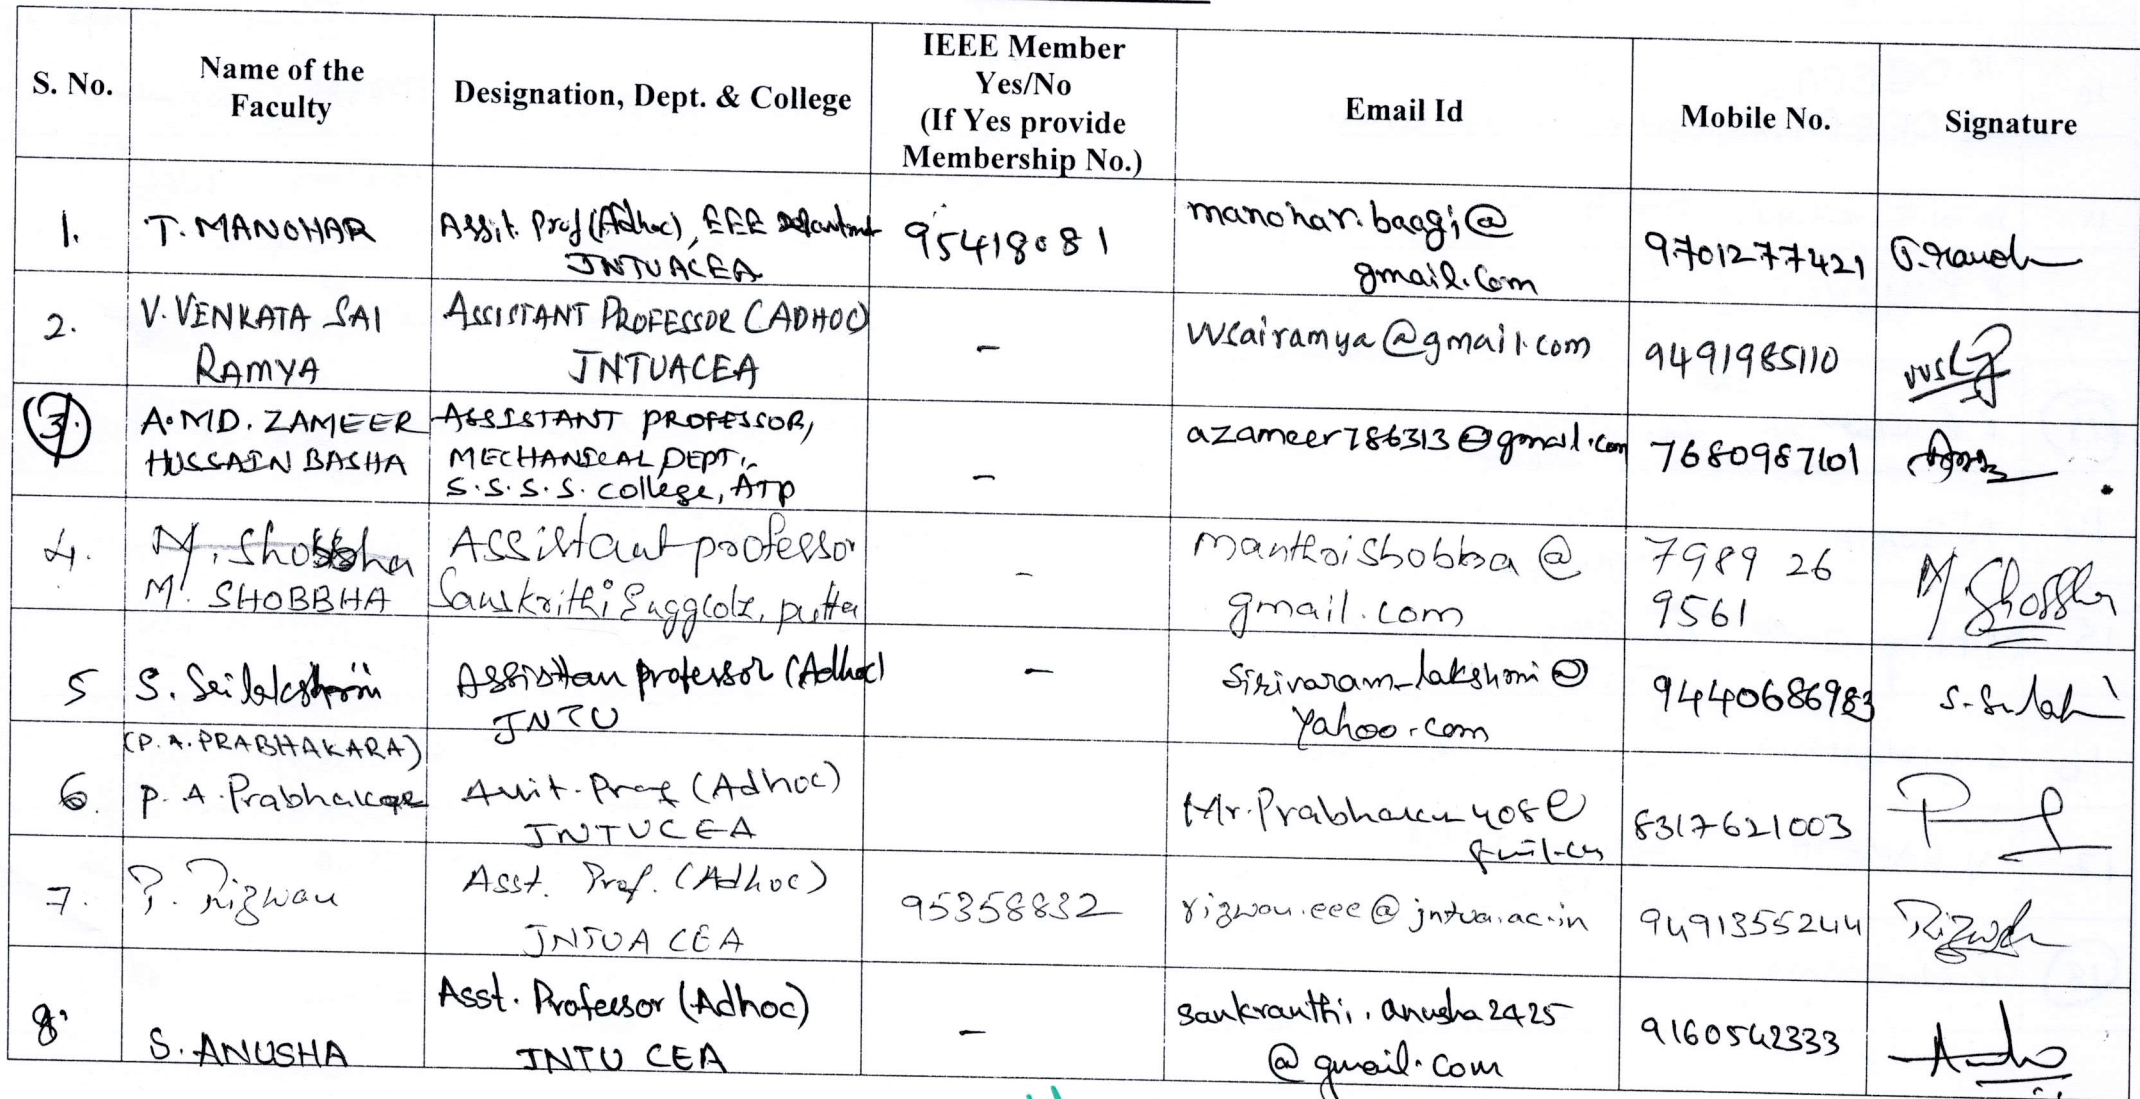 S. No.
Name of the
Faculty
Designation, Dept. & College
IEEE Member
Yes/No
(If Yes provide
Membership No.)
Email Id
Mobile No.
Signature
1.
T. MANOHAR
Assit. Prof (Adhoc), EEE
JNTUACEA
95418081
manohar.baagi@
gmail.com
9701277421
2.
V. VENKATA SAI
RAMYA
ASSISTANT PROFESSOR (ADHOC)
JNTUACEA
-
vvsairamya@gmail.com
9491985110
3.
A.MD. ZAMEER
HUSSAIN BASHA
ASSISTANT PROFESSOR,
MECHANICAL DEPT.,
S.S.S.S. college, ATP
-
azameer786313@gmail.com
7680987101
4.
M. Shobbha
M. SHOBBHA
Assistant professor
Sanskrithi Engg
-
@
gmail.com
7989 26
9561
M Shobbha
5
S. Srilakshmi
Assistan professor (Adhoc)
JNTU
-
sirivaram_lakshmi@
yahoo.com
9440686983
6.
(P.A. PRABHAKARA)
P. A. Prabhakara
Assit. Prof (Adhoc)
JNTUCEA
8317621003
7.
P. Rizwan
Asst. Prof. (Adhoc)
JNTUA CEA
95358832
rizwan.eee@jntua.ac.in
9491355244
Rizwan
8.
S. ANUSHA
Asst. Professor (Adhoc)
JNTU CEA
-
sankranthi.anusha2425
@gmail.com
9160542333